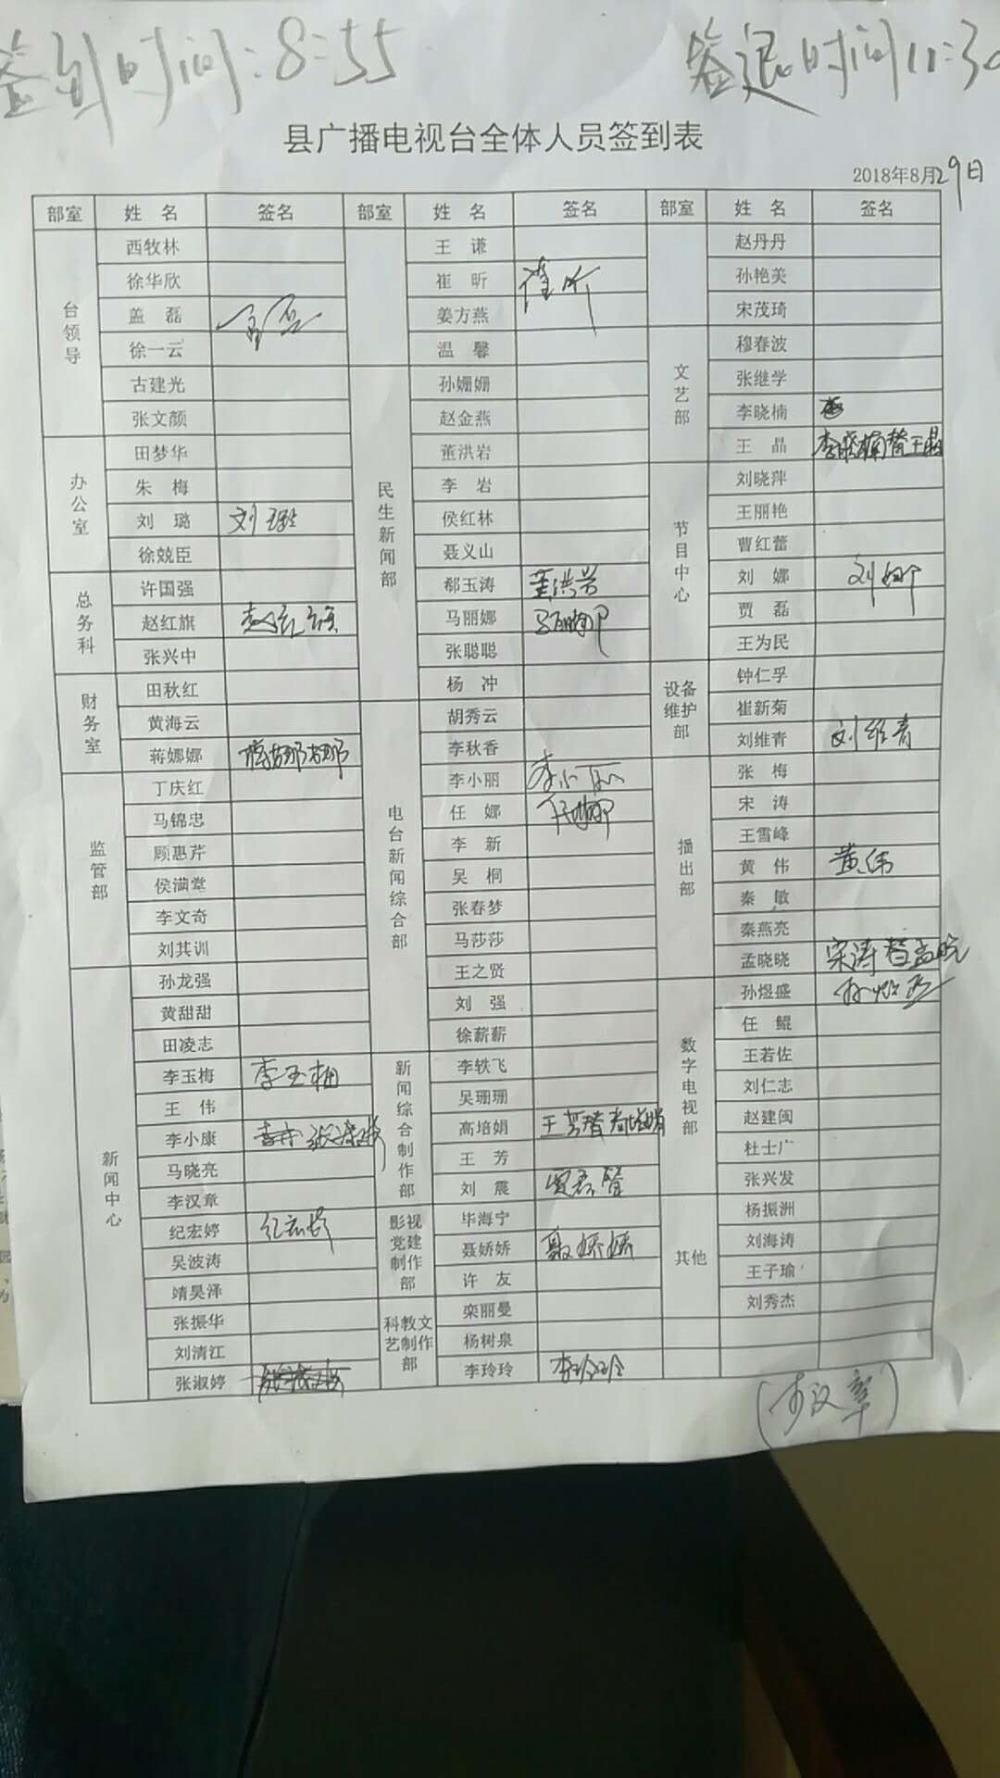 签到时间:8:55 签退时间11:30
县广播电视台全体人员签到表
2018年8月29日
部室 姓 名 签名 部室 姓 名 签名 部室 姓 名 签名
台领导 西牧林 王 谦 赵丹丹
徐华欣 崔 昕 崔昕 孙艳美
盖 磊 盖磊 姜方燕 宋茂琦
徐一云 温 馨 文艺部 穆春波
古建光 民生新闻部 孙姗姗 张继学
张文颜 赵金燕 李晓楠
办公室 田梦华 董洪岩 王 晶 李晓楠替王晶
朱 梅 李 岩 节目中心 刘晓萍
刘 璐 刘璐 侯红林 王丽艳
徐兢臣 聂义山 曹红蕾
总务科 许国强 郗玉涛 董洪岩 刘 娜 刘娜
赵红旗 赵红旗 马丽娜 马丽娜 贾 磊
张兴中 张聪聪 王为民
财务室 田秋红 杨 冲 设备维护部 钟仁孚
黄海云 电台新闻综合部 胡秀云 崔新菊
蒋娜娜 蒋娜娜 李秋香 刘维青 刘维青
监管部 丁庆红 李小丽 李小丽 播出部 张 梅
马锦忠 任 娜 任娜 宋 涛
顾惠芹 李 新 王雪峰
侯满堂 吴 桐 黄 伟 黄伟
李文奇 张春梦 秦 敏
刘其训 马莎莎 秦燕亮
新闻中心 孙龙强 王之贤 孟晓晓 宋涛替孟晓
黄甜甜 刘 强 数字电视部 孙煜盛 孙煜盛
田凌志 徐薪薪 任 鲲
李玉梅 李玉梅 新闻综合制作部 李轶飞 王若佐
王 伟 吴珊珊 刘仁志
李小康 高培娟 王芳替高培娟 赵建闽
马晓亮 王 芳 杜士广
李汉章 刘 震 贾磊替 张兴发
纪宏婷 纪宏婷 影视党建制作部 毕海宁 其他 杨振洲
吴波涛 聂娇娇 聂娇娇 刘海涛
靖昊泽 许 友 王子瑜
张振华 科教文艺制作部 栾丽曼 刘秀杰
刘清江 杨树泉
张淑婷 李玲玲 李玲玲
(李汉章)